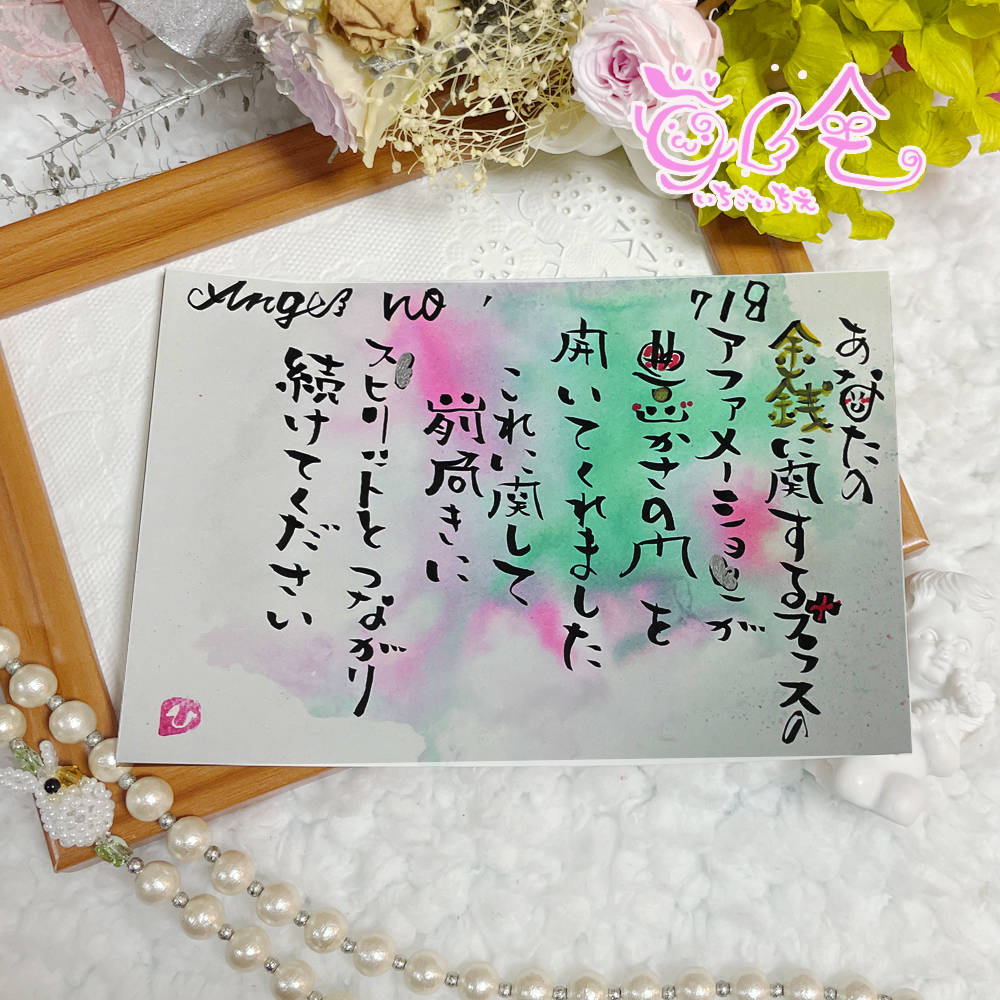 Angel no, 718
あなたの
金銭に関するプラスの
アファメーションが
豊かさの門を
開いてくれました
これに関して
前向きに
スピリットとつながり
続けてください
いちごいちえ